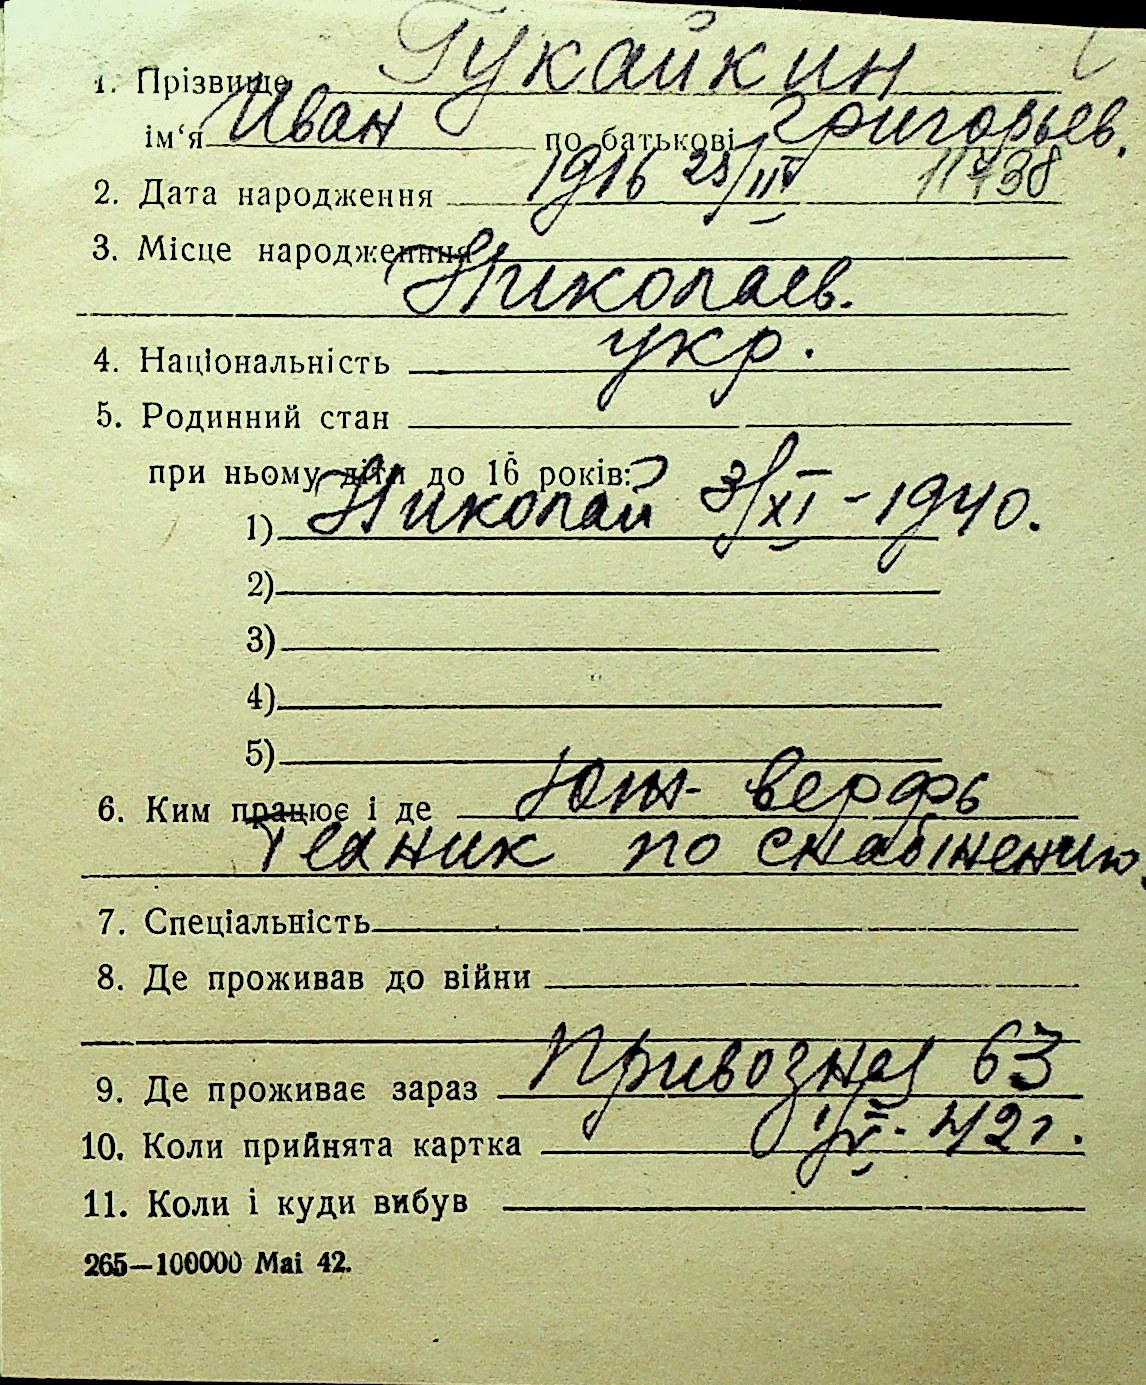 1. Прізвище Гукайкин
ім‘я Иван по батькові Григорьев.
2. Дата народження 1916 23/III 11738
3. Місце народження
Николаев.
4. Національність укр.
5. Родинний стан
при ньому діти до 16 років:
1) Николай 3/XI - 1940.
2)
3)
4)
5)
6. Ким працює і де Юж- верфь
Техник по снабжению.
7. Спеціальність
8. Де проживав до війни
9. Де проживає зараз Привозная 63
10. Коли прийнята картка 42г.
11. Коли і куди вибув
265—100000 Mai 42.